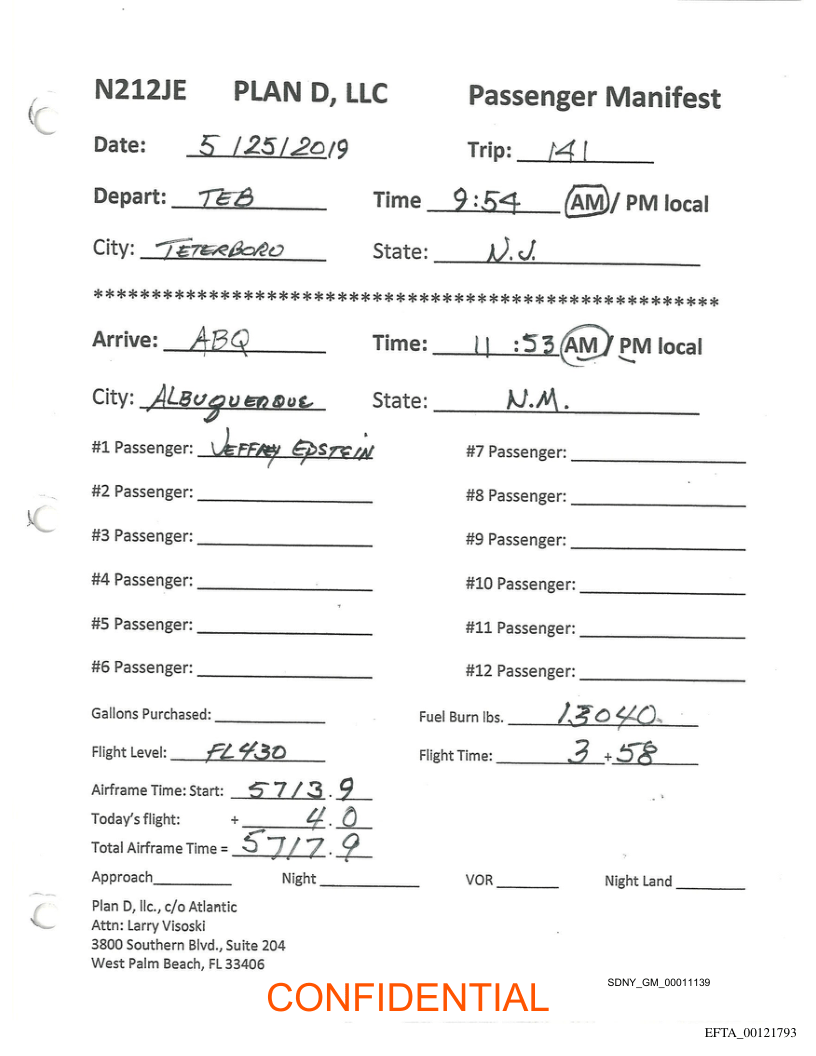 N212JE PLAN D, LLC Passenger Manifest
Date: 5/25/2019 Trip: 141
Depart: TEB Time 9:54 AM/ PM local
City: TETERBORO State: N.J.
*****************************************************
Arrive: ABQ Time: 11:53 AM/ PM local
City: ALBUQUERQUE State: N.M.
#1 Passenger: JEFFREY EPSTEIN #7 Passenger:
#2 Passenger: #8 Passenger:
#3 Passenger: #9 Passenger:
#4 Passenger: #10 Passenger:
#5 Passenger: #11 Passenger:
#6 Passenger: #12 Passenger:
Gallons Purchased: Fuel Burn lbs. 13040.
Flight Level: FL430 Flight Time: 3 + 58
Airframe Time: Start: 5713.9
Today's flight: + 4.0
Total Airframe Time = 5717.9
Approach Night VOR Night Land
Plan D, llc., c/o Atlantic
Attn: Larry Visoski
3800 Southern Blvd., Suite 204
West Palm Beach, FL 33406
SDNY_GM_00011139
CONFIDENTIAL
EFTA_00121793